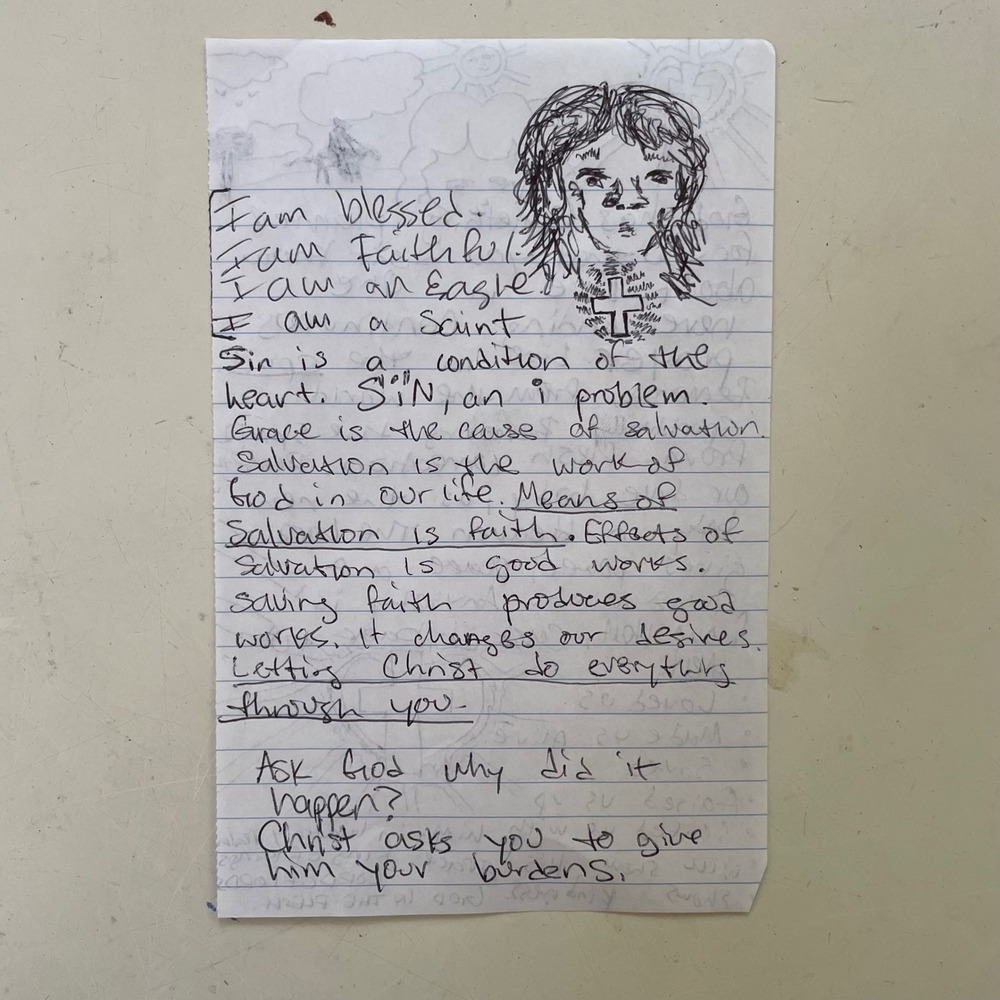 I am blessed.
I am Faithful.
I am an Eagle.
I am a Saint
Sin is a condition of the
heart. SiN, an i problem.
Grace is the cause of salvation.
Salvation is the work of
God in our life. Means of
Salvation is faith. Effects of
Salvation is good works.
Saving faith produces good
works. It changes our desires.
Letting Christ do everything
through you.
Ask God why did it
happen?
Christ asks you to give
him your burdens.